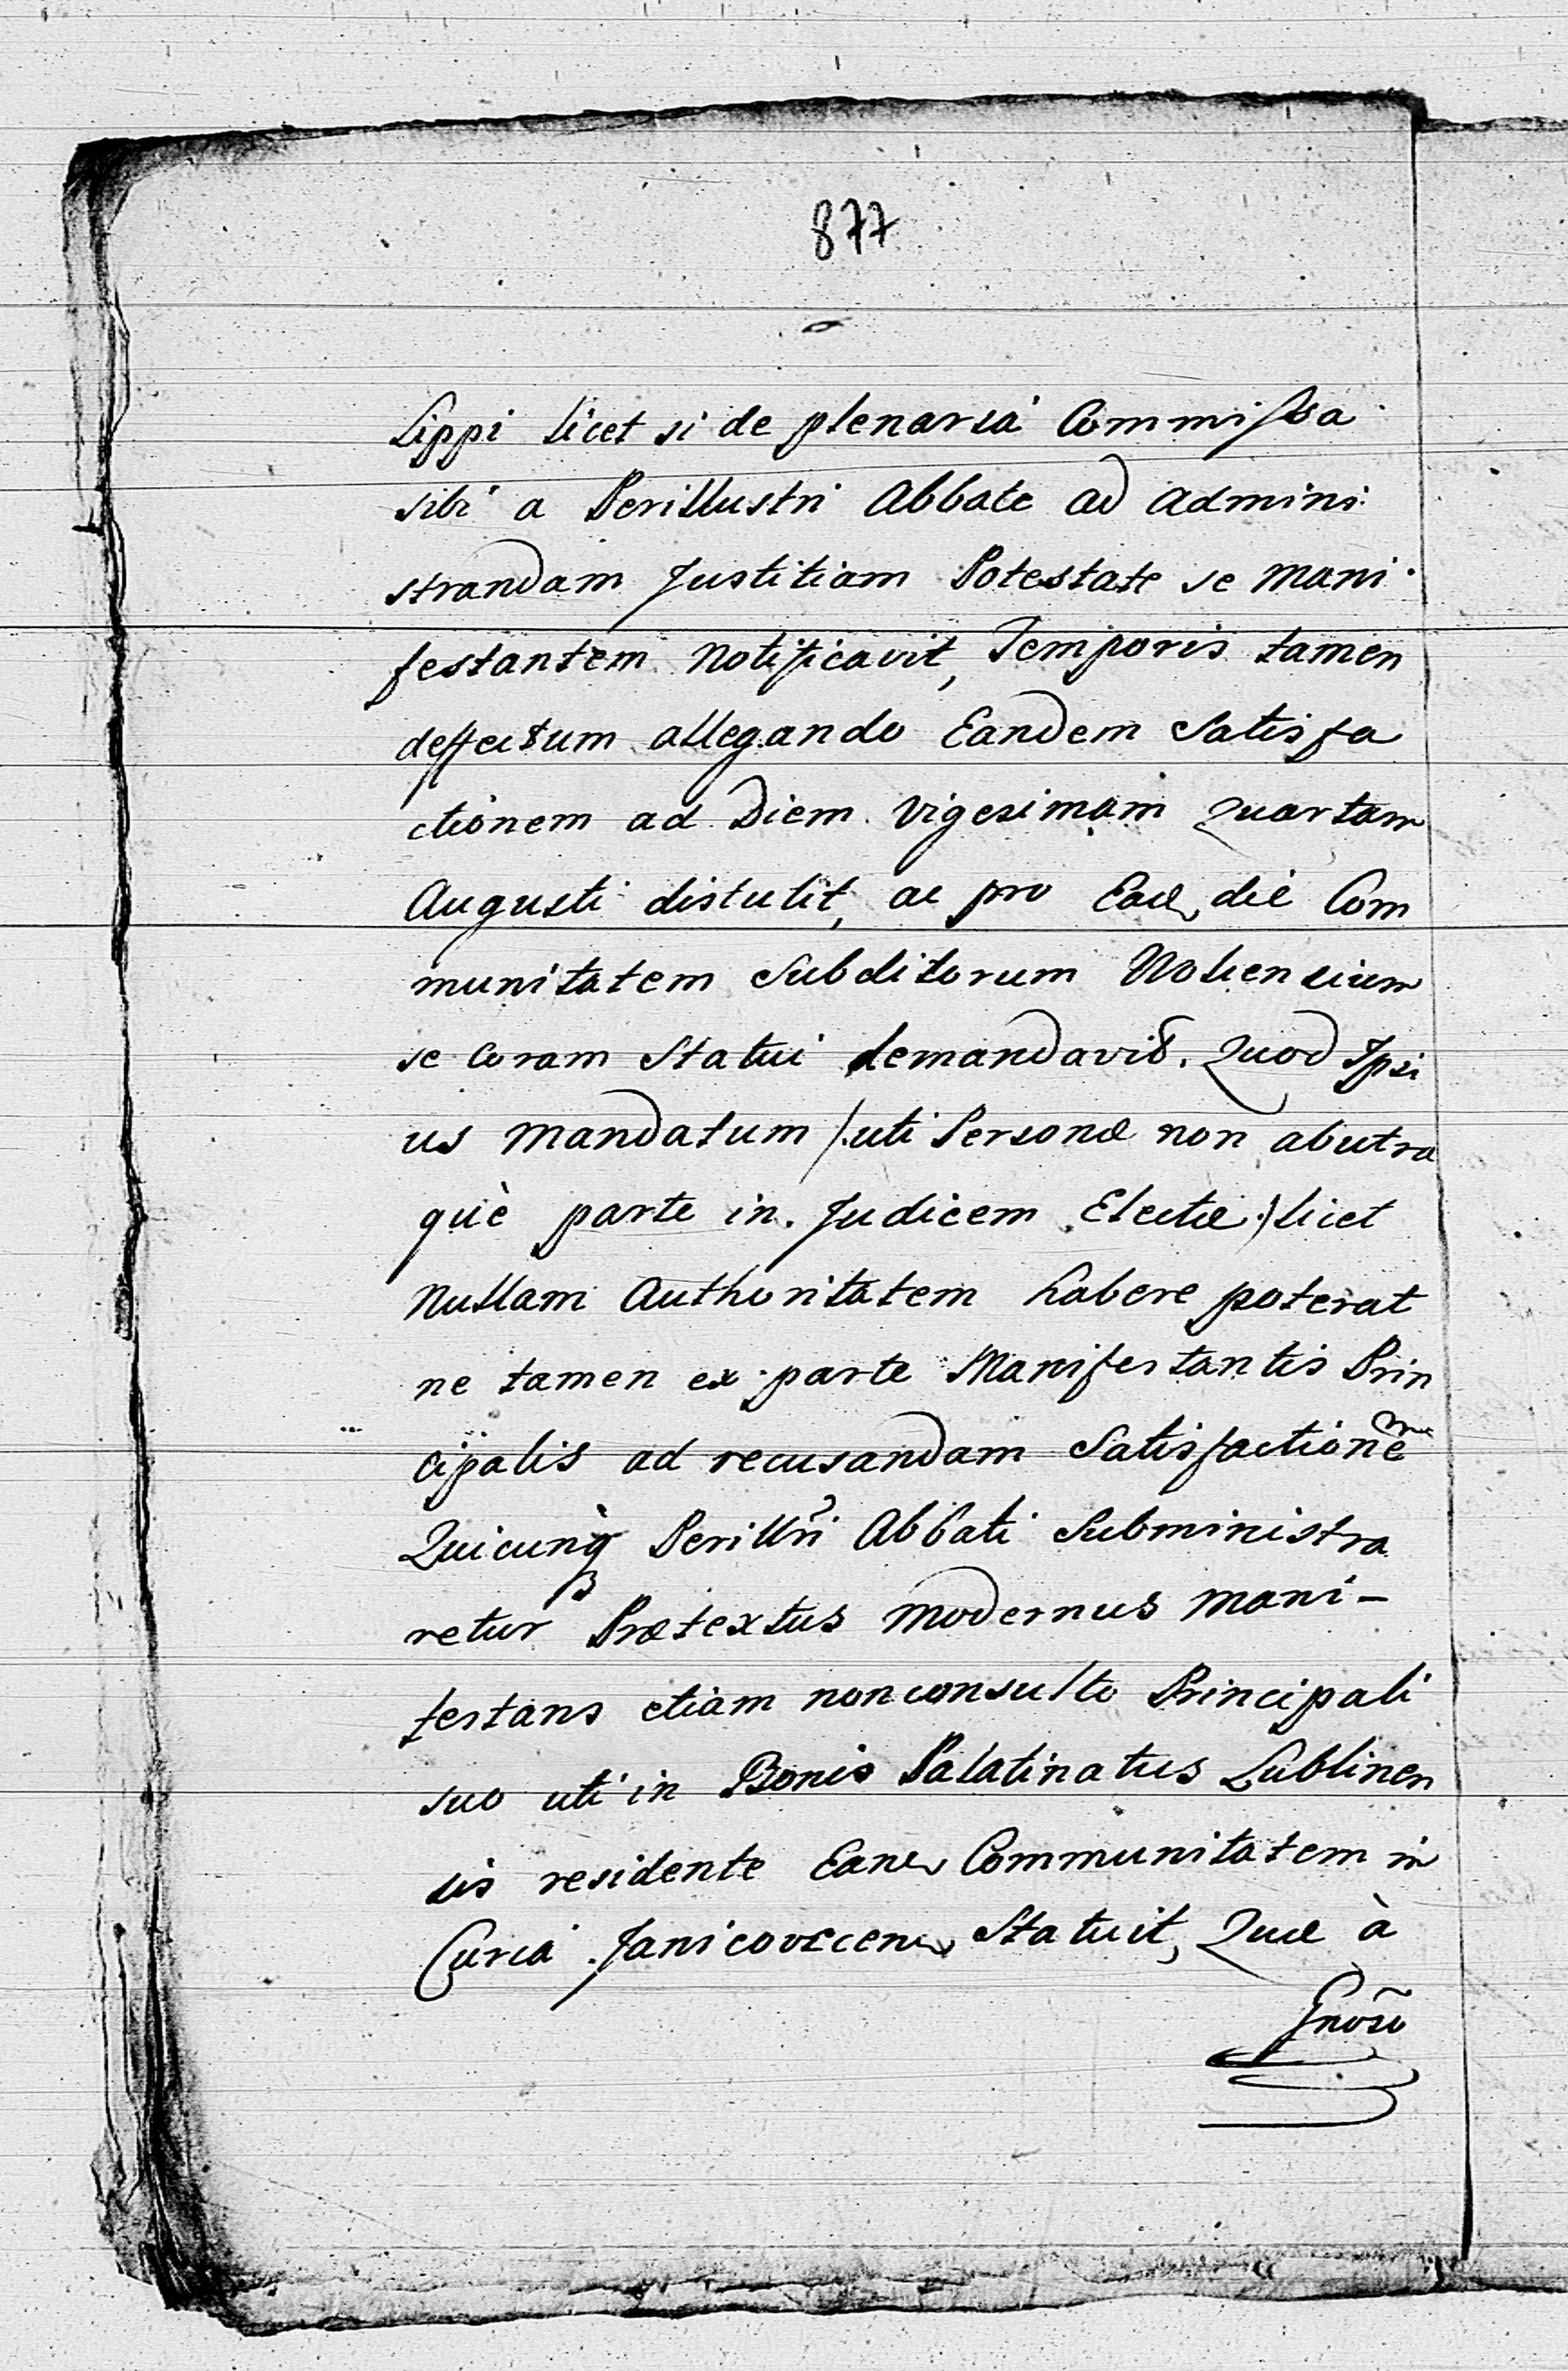 877
Lippi licet si de plenariá Commissa
sibi a Perillustri Abbate ad admini
strandam Justitiam Potestate se mani
festantem notificavit, Temporis tamen
deffectum allegando Eandem Satisfa
ctionem ad Diem vigesimam quartam
Augusti distulit, ac pro Ead, die Com
munitatem Subditorum Woliensium
se coram Statui demandavit. Quod Ipsi
us mandatum /:uti Personæ non abutra
què parte in Judicem Electæ:/ licet
Nullam Authoritatem habere poterat
ne tamen ex parte Manifestantis Prin
cipalis ad recusandam Satisfactionē
Quicunq Perillri Abbati Subministra
retur Prætextus modernus mani-
festans etiam non consulto Principali
suo uti in Bonis Palatinatus Lublinen
sis residente Ean Communitatem in
Curia Janicoviecen Statuit, Quæ à
Gnoso